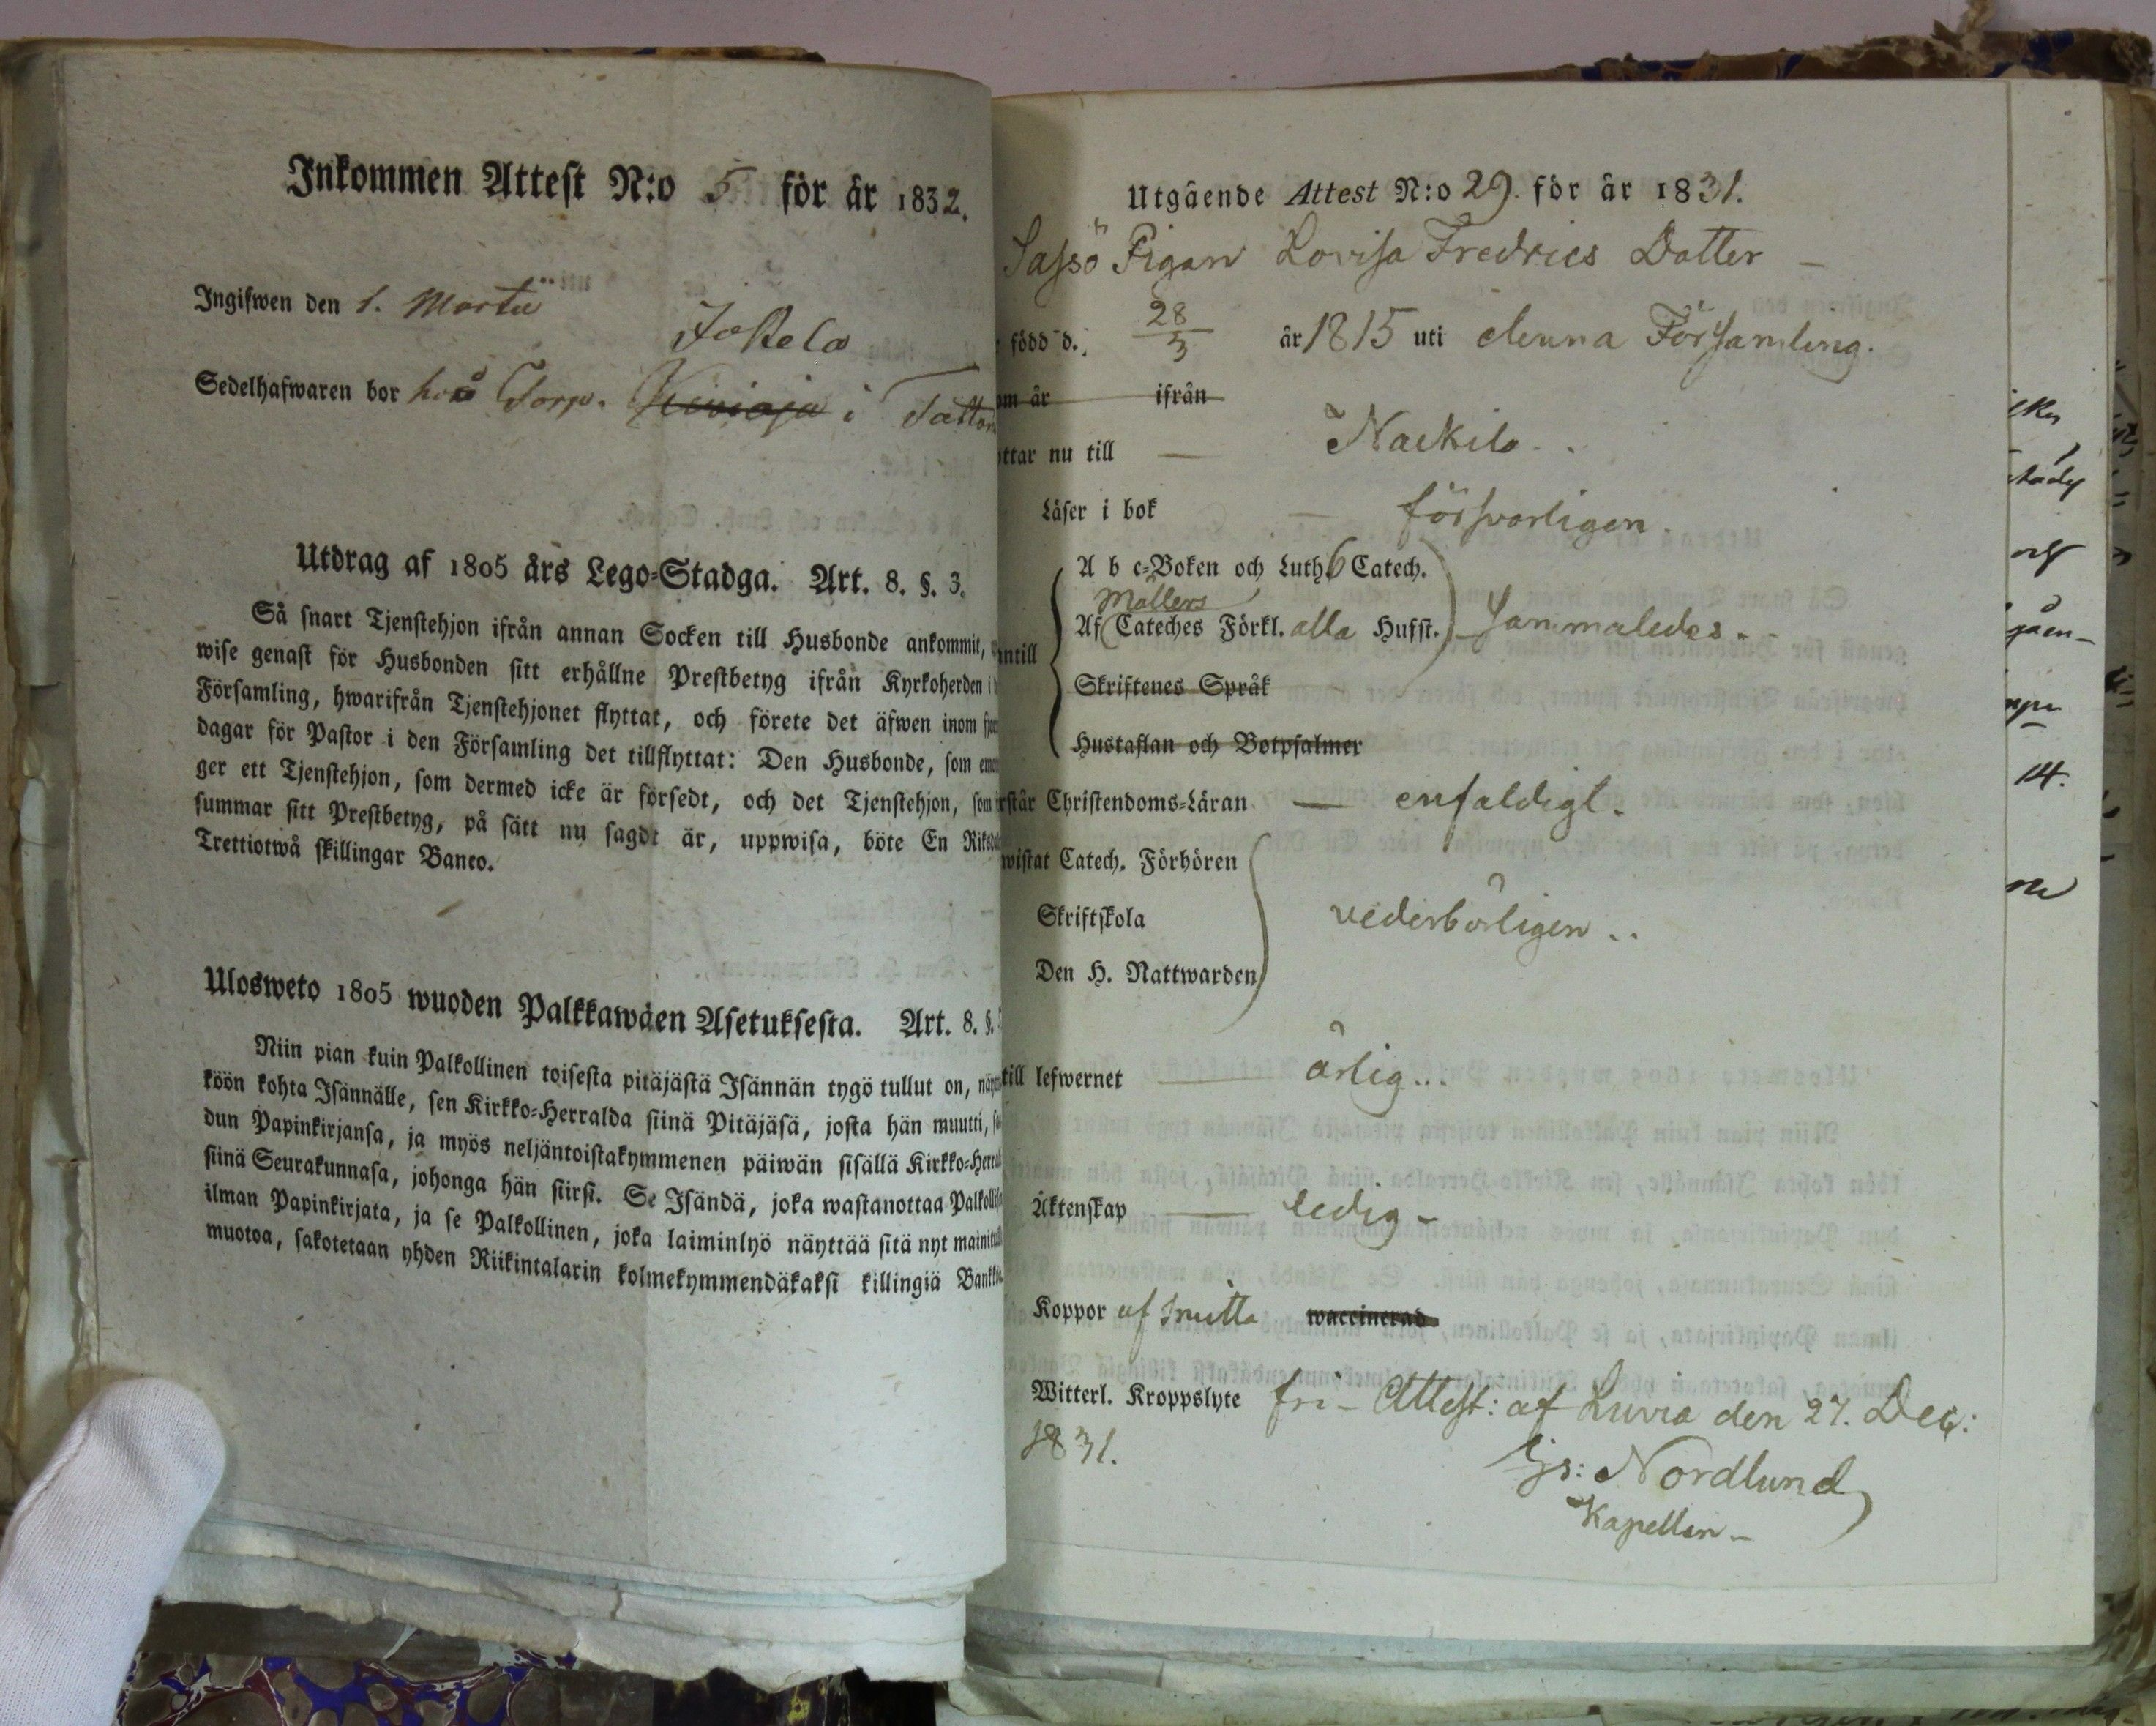 Inkommen Attest N:o 5 för år 1832.
Ingifwen den 1. Martii
Jokela
Sedelhafwaren bor hos Torp. Kivioja i Tatto
Utdrag af 1805 års Lego-Stadga. Art. 8. §. 3.
Så snart Tjenstehjon ifrån annan Socken till Husbonde ankommit,
wise genast för Husbonden sitt erhållne Prestbetyg ifrån Kyrkoherden i
Församling, hwarifrån Tjenstehjonet flyttat, och förete det äfwen inom
dagar för Pastor i den Församling det tillflyttat: Den Husbonde, som
ger ett Tjenstehjon, som dermed icke är försedt, och det Tjenstehjon, som
summar sitt Prestbetyg, på sätt nu sagdt är, uppwisa, böte En
Trettiotwå skillingar Banco.
Ulosweto 1805 wuoden Palkkawäen Asetuksesta. Art. 8. §.
Niin pian kuin Palkollinen toisesta pitäjästä Isännän tygö tullut on,
köön kohta Isännälle, sen Kirkko-Herralda siinä Pitäjäsä, josta hän muutti,
dun Papinkirjansa, ja myös neljäntoistakymmenen päiwän sisällä Kirkko-
siinä Seurakunnasa, johonga hän siirsi. Se Isändä, joka wastanottaa
ilman Papinkirjata, ja se Palkollinen, joka laiminlyö näyttää sitä nyt
muotoa, sakotetaan yhden Riikintalarin kolmekymmendäkaksi killingiä
Utgående Attest N:o 29. för år 1831.
Sassö Pigan Lovisa Fredrics Dotter
född d. 28/3 år 1815 uti denna Församling.
om år ifrån
ttar nu till Nackila
Läser i bok försvarligen
A b c-Boken och Luth. Catech.
Möllers
Af Cateches Förkl. alla Hufst. sammaledes
ntill
Skriftenes Språk
Hustaflan och Botpsalmer
rstår Christendoms-Läran enfaldigt.
wistat Catech. Förhören
Skriftskola vederbörligen
Den H. Nattwarden
till lefwernet ärlig
Äktenskap ledig
Koppor af smitta waccinerad
Witterl. Kroppslyte fri Attest: af Luvia den 27. Dec:
1831.
Gs: Nordlund
Kapellan
14.